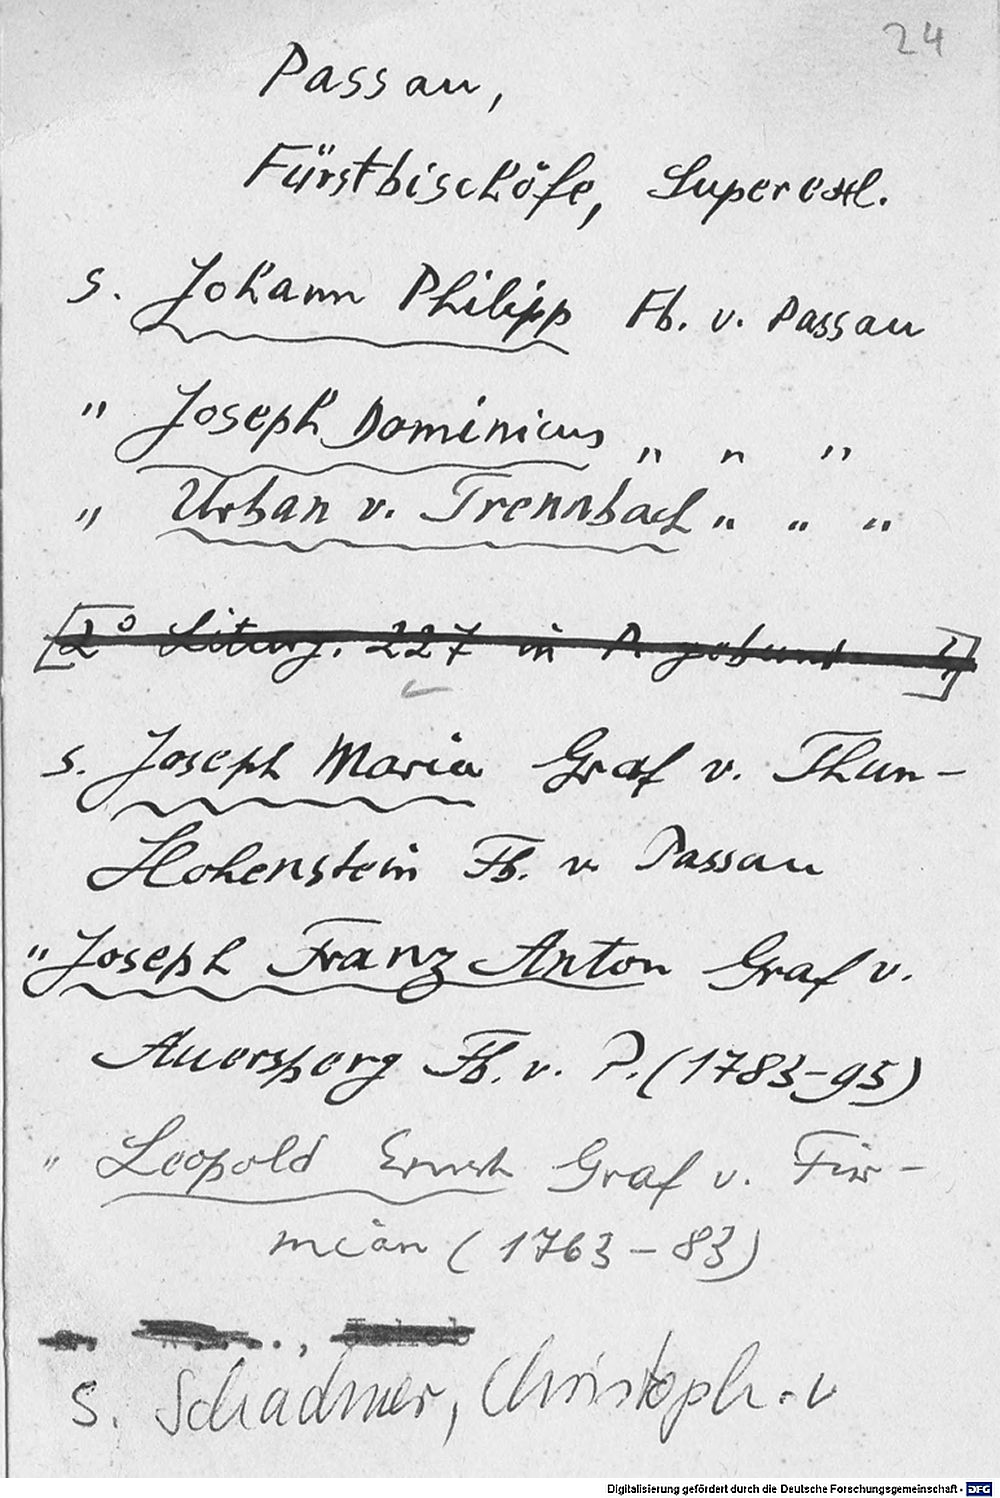 24
Passau,
Fürstbischöfe, Superexl.
s. Johann Philipp Fb. v. Passau
" Joseph Dominicus " " "
" Urban v. Trennbach " " "
[2° Liturg. 227 in P. gebund
s. Joseph Maria Graf v. Thun-
Hohenstein Fb. v. Passau
" Joseph Franz Anton Graf v.
Auersperg Fb. v. P. (1783-95)
" Leopold Ernst Graf v. Fir-
mian (1763-83)
s. Schadner, Christoph v
Digitalisierung gefördert durch die Deutsche Forschungsgemeinschaft - DFG